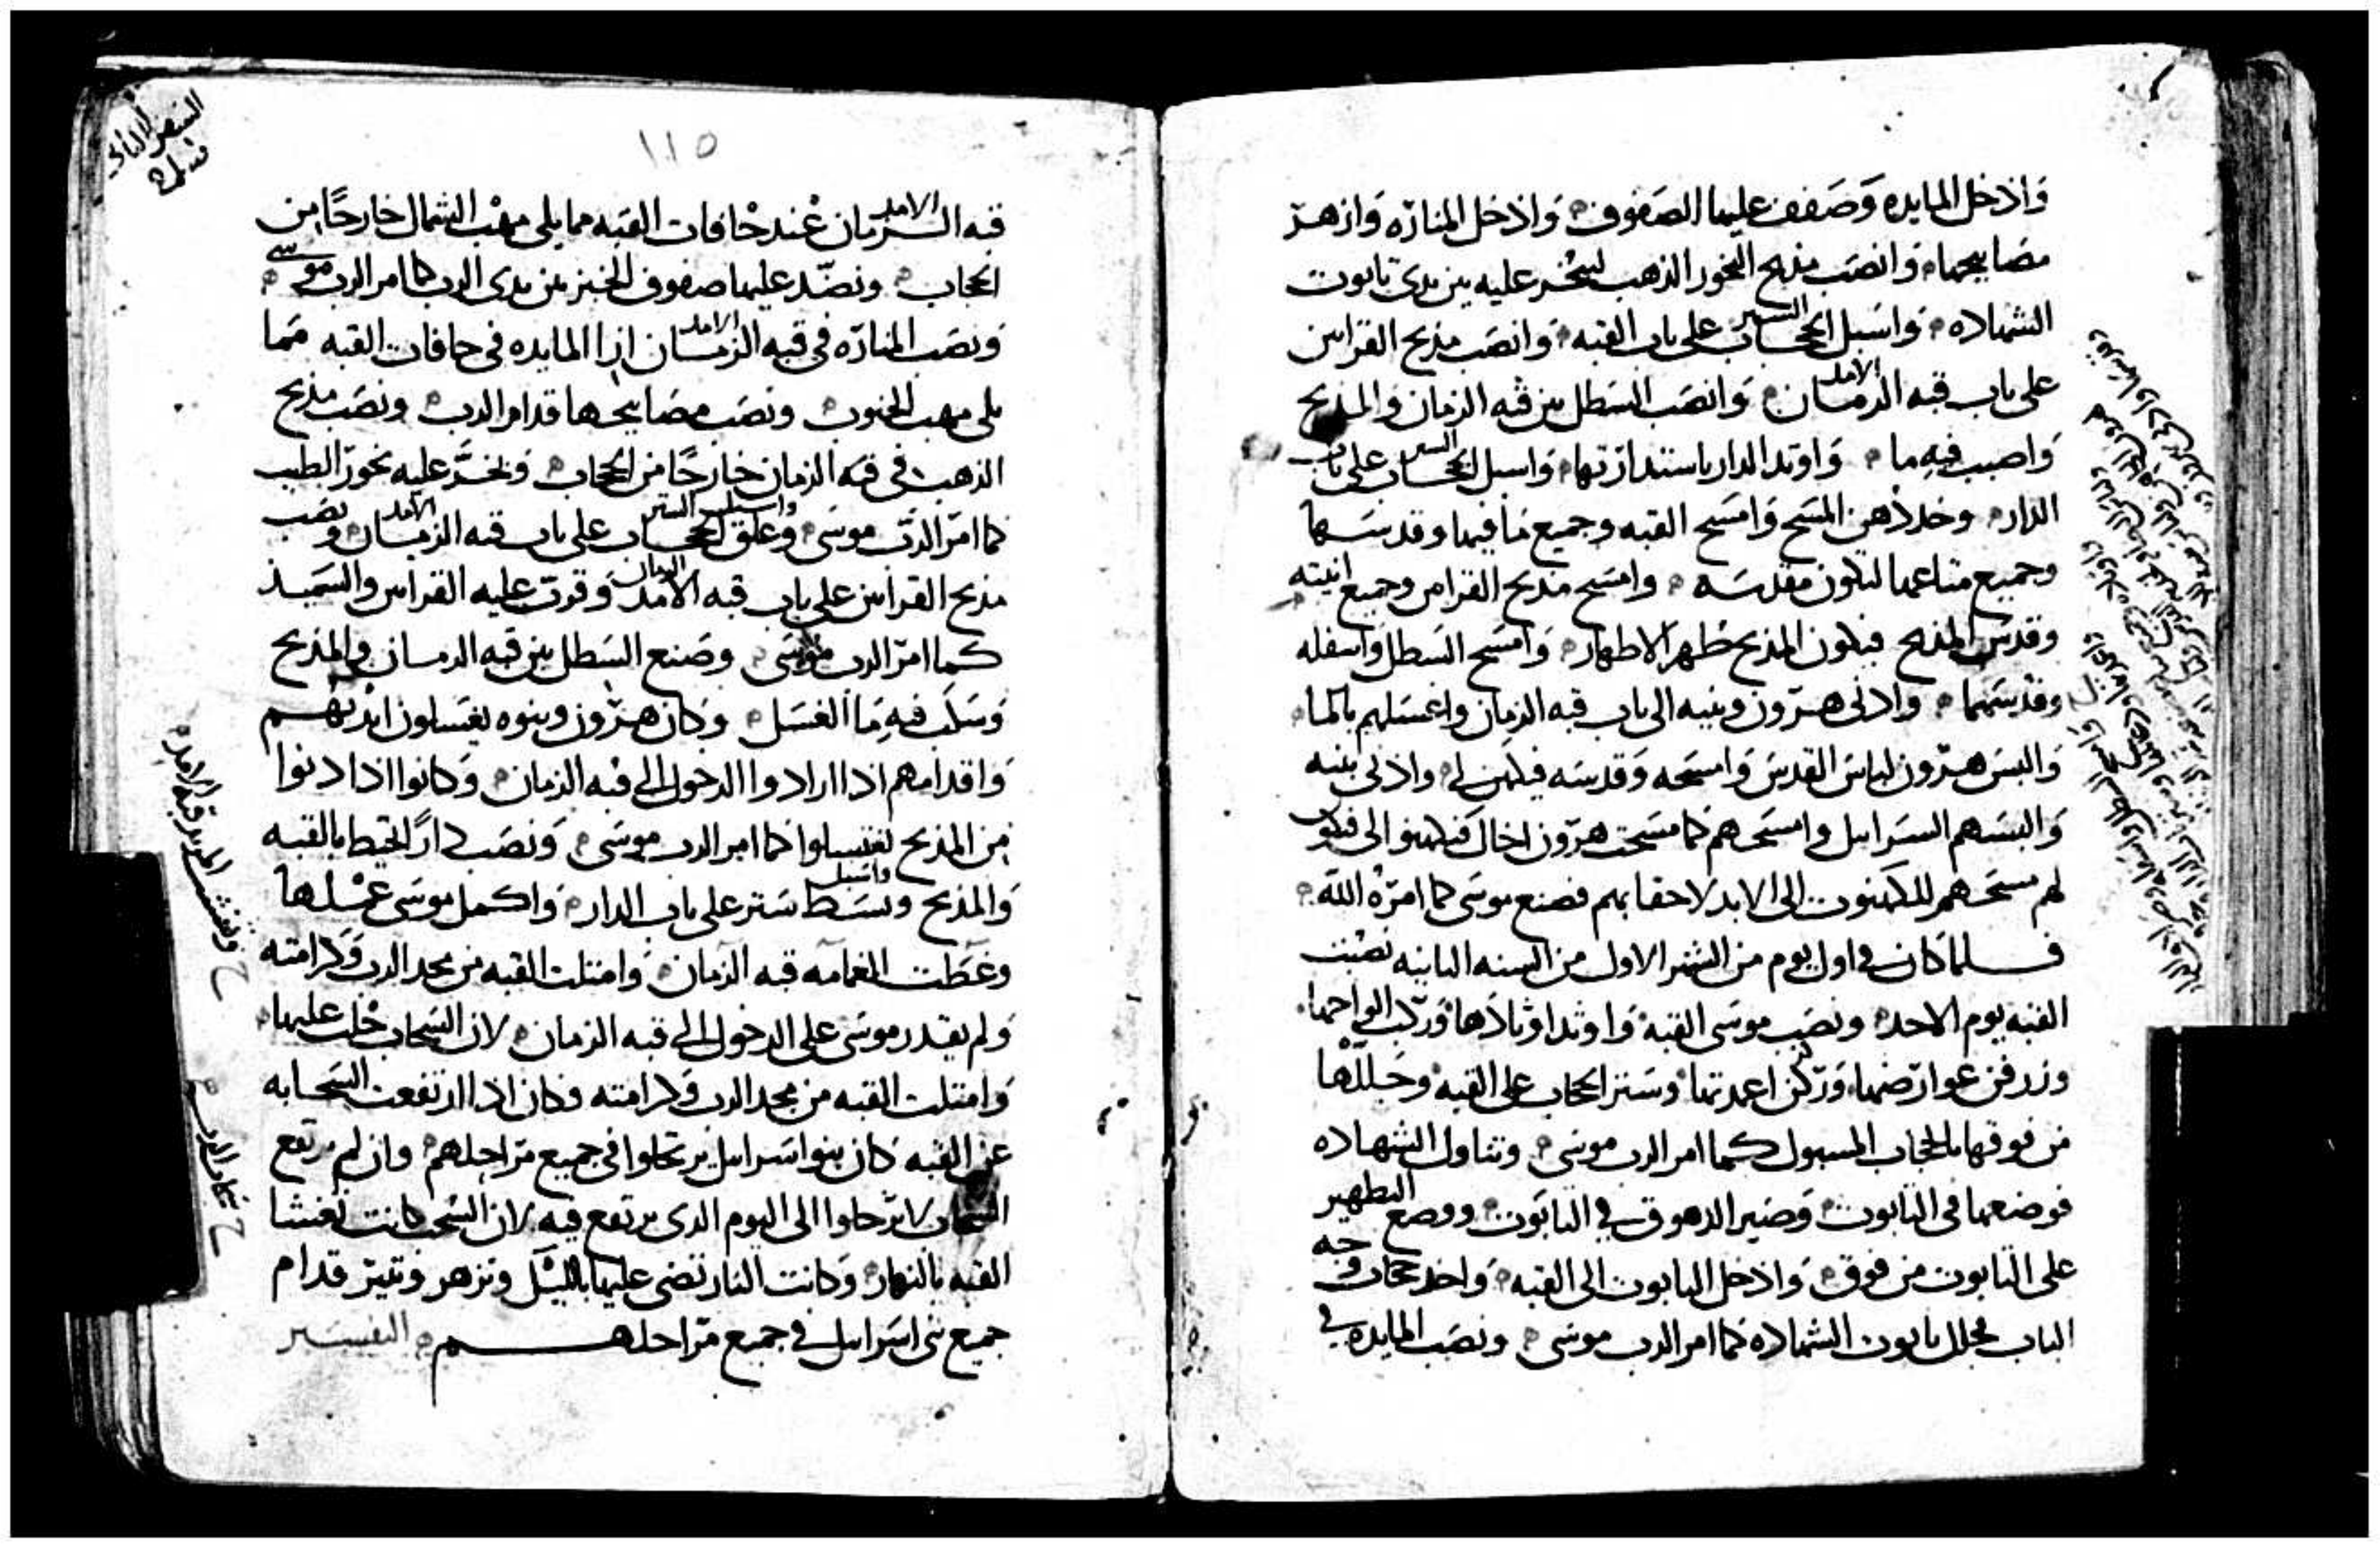 وادخل المايده وصفف عليها الصفوف وادخل المناره وازهر
مصابيحها وانصب مذبح البخور الذهب ليبخر عليه بين يدى تابوت
الشهاده واسبل الحجاب الستر على باب القبه وانصب مذبح القرابين
على باب قبه الزمان الامد وانصب السطل بين قبه الزمان والمذبح
واصبب فيه ما واوتد الدار باستدارتها واسبل الحجاب الستر على باب
الدار وخذ دهن المسح وامسح القبه وجميع ما فيها وقدسها
وجميع متاعها لتكون مقدسه وامسح مذبح القرابين وجميع انيته
وقدس المذبح فيكون المذبح طهر الاطهار وامسح السطل واسفله
وقدسهما وادنى هرون وبنيه الى باب قبه الزمان واغسلهم بالما
والبس هرون لباس القدس وامسحه وقدسه فيكهن لى وادنى بنيه
والبسهم السرابيل وامسحهم كما مسحت هرون اخاك فيكهنوا الى فيكون
لهم مسحهم للكهنوت الى الابد لاحقابهم فصنع موسى كما امره الله
فلما كان فى اول يوم من الشهر الاول من السنه الثانيه نصبت
القبه يوم الاحد ونصب موسى القبه واوتد اوتادها وركب الواحها
وزرفن عوارضها وركن اعمدتها وستر الحجاب على القبه وجللها
من فوقها بالحجاب المسبول كما امر الرب موسى وتناول الشهاده
فوضعها فى التابوت وصير الدهوق فى التابوت ووضع التطهير
على التابوت من فوق وادخل التابوت الى القبه واخذ حجاب وجه
الباب فجلل تابوت الشهاده كما امر الرب موسى ونصب المايده فى
السفر الثانى
١١٥
قبه الزمان الامد عند حافات القبه مما يلى مهب الشمال خارجا من
الحجاب ونضد عليها صفوف الخبز بين يدى الرب كما امر الرب موسى
ونصب المناره فى قبه الزمان الامد ازا المايده فى حافات القبه مما
يلى مهب الجنوب ونصب مصابيحها قدام الرب ونصب مذبح
الذهب فى قبه الزمان خارجا من الحجاب وبخر عليه بخور الطيب
كما امر الرب موسى وعلق الحجاب واسبل الستر على باب قبه الزمان الامد ونصب
مذبح القرابين على باب قبه الامد الزمان وقرب عليه القرابين والسميذ
كما امر الرب موسى وصنع السطل بين قبه الزمان والمذبح
وسكب فيه ما الغسل وكان هرون وبنوه يغسلون ايديهم
واقدامهم اذا ارادوا الدخول الى قبه الزمان وكانوا اذا دنوا
من المذبح يغتسلوا كما امر الرب موسى ونصب دارا تحيط بالقبه
والمذبح وبسط واسبل ستر على باب الدار واكمل موسى عملها
وغطت الغمامه قبه الزمان وامتلت القبه من مجد الرب وكرامته
ولم يقدر موسى على الدخول الى قبه الزمان لان السحاب حلت عليها
وامتلت القبه من مجد الرب وكرامته وكان اذا ارتفعت السحابه
عن القبه كان بنو اسرايل يرتحلوا فى جميع مراحلهم وان لم ترتفع
السحاب لا يرحلوا الى اليوم الذى يرتفع فيه لان السحب كانت تغشا
القبه بالنهار وكانت النار تضى عليها بالليل وتزهر وتنير قدام
جميع بنى اسرايل فى جميع مراحلهم التفسير